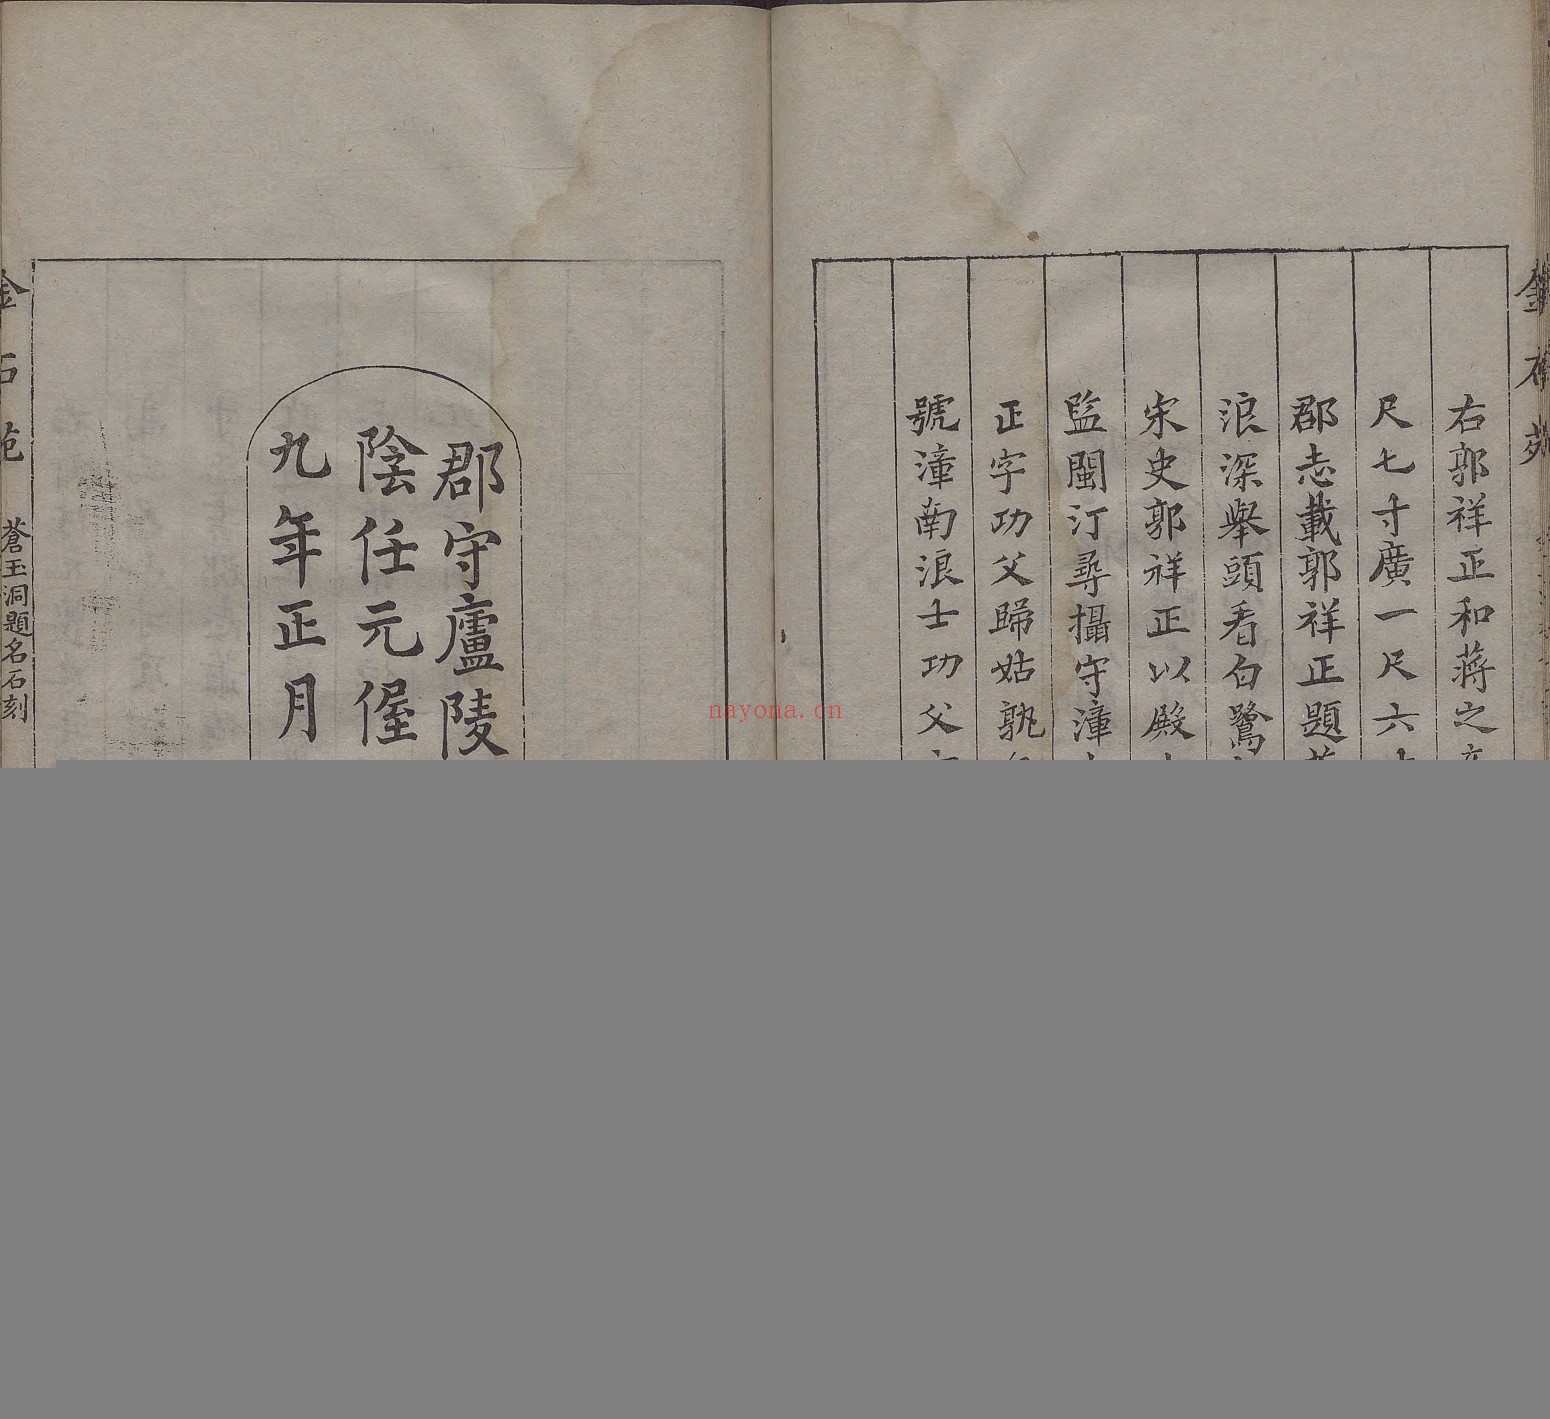 金石苑
右郭祥正和蔣之
尺七寸廣一尺六
郡志載郭祥正題
浪深舉頭看白鷺
宋史郭祥正以殿
監閩汀尋攝守漳
正字功父歸姑孰
號漳南浪士功父
郡守廬陵
陰任元偓
九年正月
金石苑 蒼玉洞題名石刻
nayona.cn